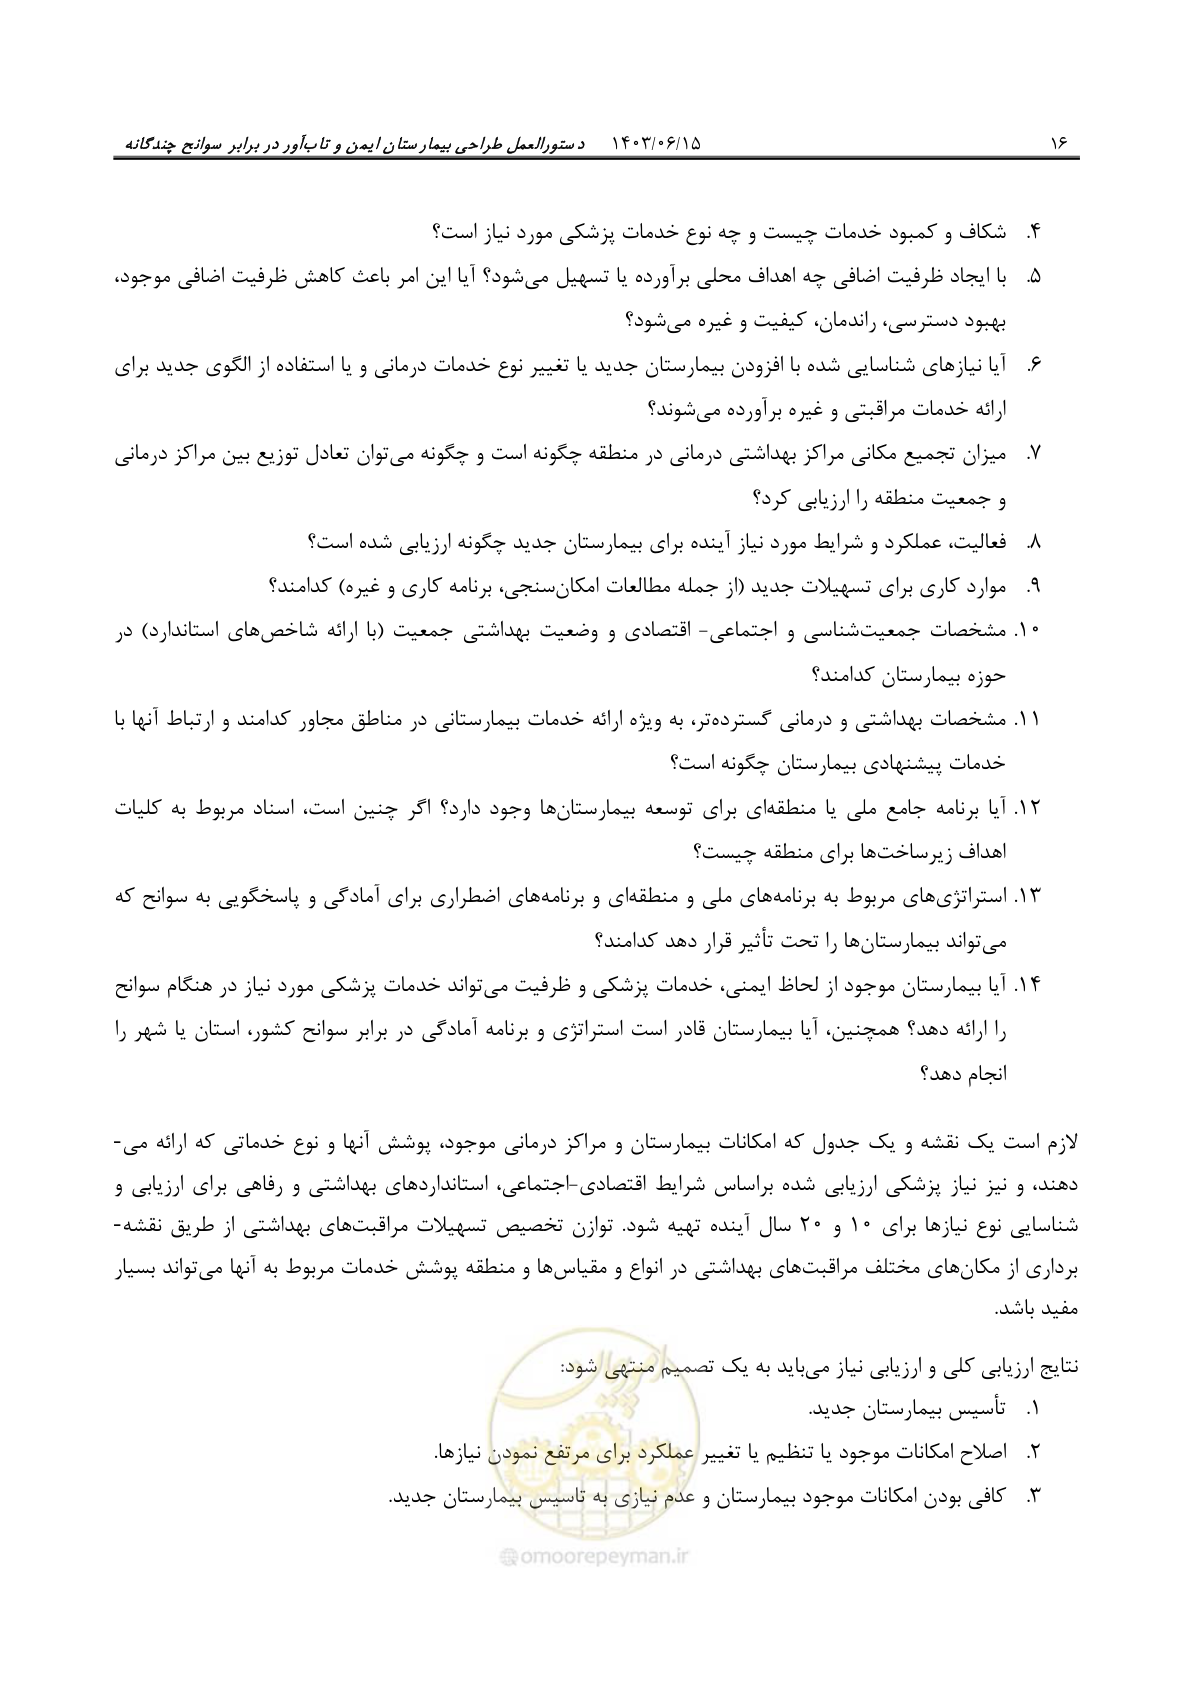 ۱۶ ۱۴۰۳/۰۶/۱۵ دستورالعمل طراحی بیمارستان ایمن و تاب‌آور در برابر سوانح چندگانه
۴. شکاف و کمبود خدمات چیست و چه نوع خدمات پزشکی مورد نیاز است؟
۵. با ایجاد ظرفیت اضافی چه اهداف محلی برآورده یا تسهیل می‌شود؟ آیا این امر باعث کاهش ظرفیت اضافی موجود،
بهبود دسترسی، راندمان، کیفیت و غیره می‌شود؟
۶. آیا نیازهای شناسایی شده با افزودن بیمارستان جدید یا تغییر نوع خدمات درمانی و یا استفاده از الگوی جدید برای
ارائه خدمات مراقبتی و غیره برآورده می‌شوند؟
۷. میزان تجمیع مکانی مراکز بهداشتی درمانی در منطقه چگونه است و چگونه می‌توان تعادل توزیع بین مراکز درمانی
و جمعیت منطقه را ارزیابی کرد؟
۸. فعالیت، عملکرد و شرایط مورد نیاز آینده برای بیمارستان جدید چگونه ارزیابی شده است؟
۹. موارد کاری برای تسهیلات جدید (از جمله مطالعات امکان‌سنجی، برنامه کاری و غیره) کدامند؟
۱۰. مشخصات جمعیت‌شناسی و اجتماعی- اقتصادی و وضعیت بهداشتی جمعیت (با ارائه شاخص‌های استاندارد) در
حوزه بیمارستان کدامند؟
۱۱. مشخصات بهداشتی و درمانی گسترده‌تر، به ویژه ارائه خدمات بیمارستانی در مناطق مجاور کدامند و ارتباط آنها با
خدمات پیشنهادی بیمارستان چگونه است؟
۱۲. آیا برنامه جامع ملی یا منطقه‌ای برای توسعه بیمارستان‌ها وجود دارد؟ اگر چنین است، اسناد مربوط به کلیات
اهداف زیرساخت‌ها برای منطقه چیست؟
۱۳. استراتژی‌های مربوط به برنامه‌های ملی و منطقه‌ای و برنامه‌های اضطراری برای آمادگی و پاسخگویی به سوانح که
می‌تواند بیمارستان‌ها را تحت تأثیر قرار دهد کدامند؟
۱۴. آیا بیمارستان موجود از لحاظ ایمنی، خدمات پزشکی و ظرفیت می‌تواند خدمات پزشکی مورد نیاز در هنگام سوانح
را ارائه دهد؟ همچنین، آیا بیمارستان قادر است استراتژی و برنامه آمادگی در برابر سوانح کشور، استان یا شهر را
انجام دهد؟
لازم است یک نقشه و یک جدول که امکانات بیمارستان و مراکز درمانی موجود، پوشش آنها و نوع خدماتی که ارائه می-
دهند، و نیز نیاز پزشکی ارزیابی شده براساس شرایط اقتصادی-اجتماعی، استانداردهای بهداشتی و رفاهی برای ارزیابی و
شناسایی نوع نیازها برای ۱۰ و ۲۰ سال آینده تهیه شود. توازن تخصیص تسهیلات مراقبت‌های بهداشتی از طریق نقشه-
برداری از مکان‌های مختلف مراقبت‌های بهداشتی در انواع و مقیاس‌ها و منطقه پوشش خدمات مربوط به آنها می‌تواند بسیار
مفید باشد.
نتایج ارزیابی کلی و ارزیابی نیاز می‌باید به یک تصمیم منتهی شود:
۱. تأسیس بیمارستان جدید.
۲. اصلاح امکانات موجود یا تنظیم یا تغییر عملکرد برای مرتفع نمودن نیازها.
۳. کافی بودن امکانات موجود بیمارستان و عدم نیازی به تاسیس بیمارستان جدید.
امور پیمان
@omoorepeyman.ir